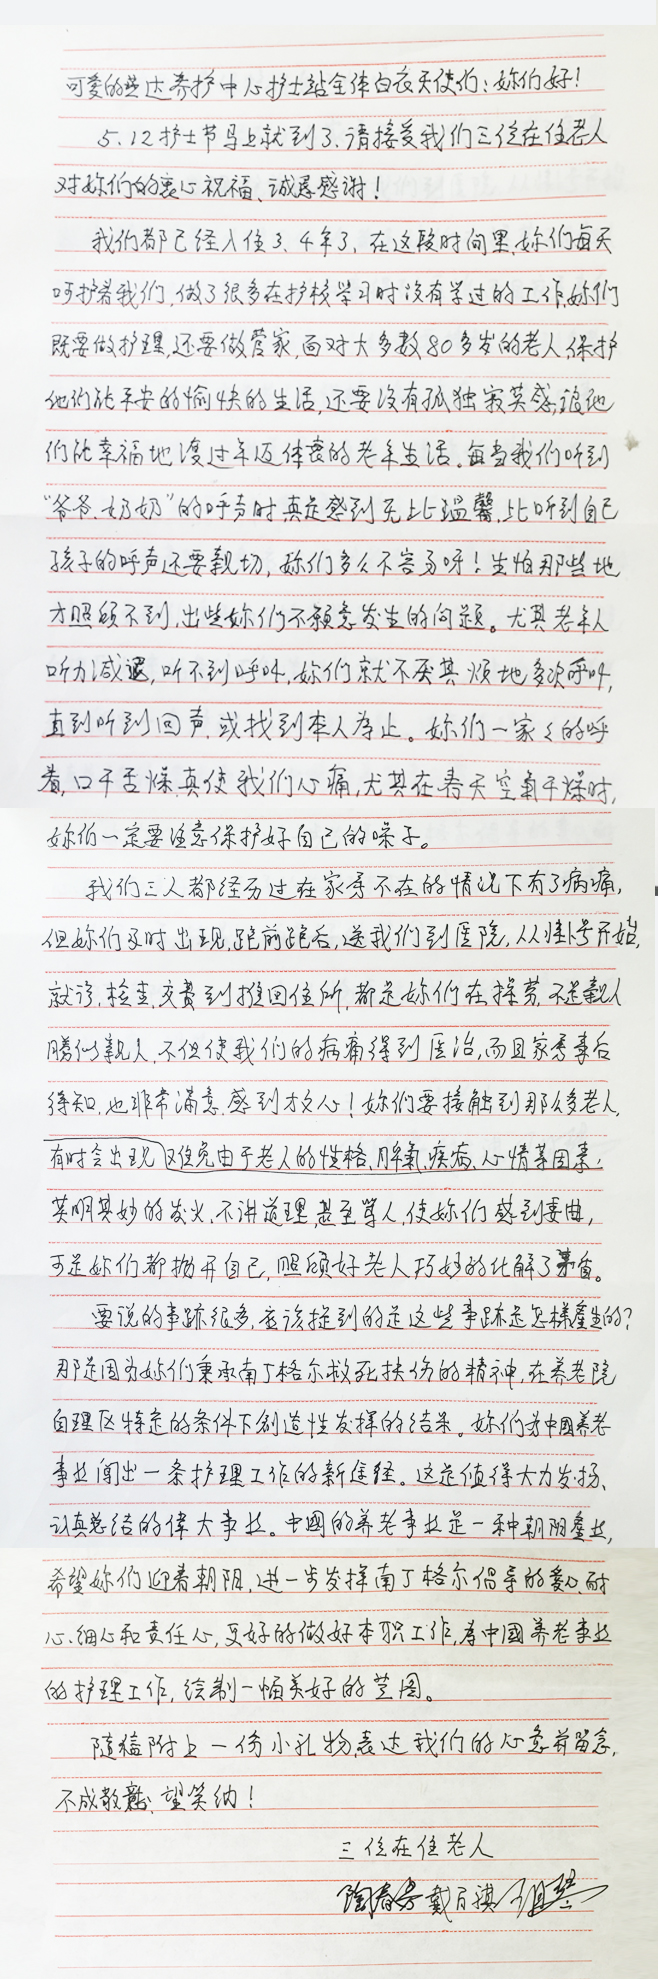 可爱的英达养护中心护士站全体白衣天使们：妳们好！
5.12护士节马上就到了，请接受我们三位在住老人
对妳们的衷心祝福、诚恳感谢！
我们都已经入住3、4年了，在这段时间里，妳们每天
呵护着我们，做了很多在护校学习时没有学过的工作，妳们
既要做护理，还要做管家，面对大多数80多岁的老人保护
他们能平安的愉快的生活，还要没有孤独寂莫感，让他
们能幸福地渡过年迈体衰的老年生活。每当我们听到
“爷爷、奶奶”的呼声时，真是感到无比温馨，比听到自己
孩子的呼声还要親切，妳们多么不容易呀！生怕那些地
方照顾不到，出些妳们不願意发生的问题。尤其老年人
听力减退，听不到呼叫，妳们就不厌其烦地多次呼叫，
直到听到回声，或找到本人为止。妳们一家々的呼
着，口干舌燥，真使我们心痛，尤其在春天空氣干燥时，
妳们一定要注意保护好自己的嗓子。
我们三人都经历过在家属不在的情况下有了病痛，
但妳们及时出现，跑前跑后，送我们到医院，从挂号开始，
就诊，检查，交费到推回住所，都是妳们在操劳，不是親人
勝似親人，不但使我们的病痛得到医治，而且家属事后
得知，也非常满意，感到放心！妳们要接触到那么多老人，
有时会出现 难免由于老人的性格、脾氣、疾病、心情等因素，
莫明其妙的发火、不讲道理，甚至骂人，使妳们感到委曲，
可是妳们都抛开自己，照顾好老人巧妙的化解了矛盾。
要说的事跡很多，应该提到的是这些事跡是怎样產生的？
那是因为妳们秉承南丁格尔救死扶伤的精神，在养老院
自理区特定的条件下创造性发挥的结果。妳们为中國养老
事业闯出一条护理工作的新途径。这是值得大力发扬、
认真总结的偉大事业。中國的养老事业是一种朝阳產业，
希望妳们迎着朝阳，进一步发挥南丁格尔倡导的爱心、耐
心、细心和责任心，更好的做好本职工作，為中國养老事业
的护理工作，绘制一幅美好的兰图。
随信附上一份小礼物，表达我们的心意并留念，
不成敬意，望笑纳！
三位在住老人
陶春芳 戴百祺